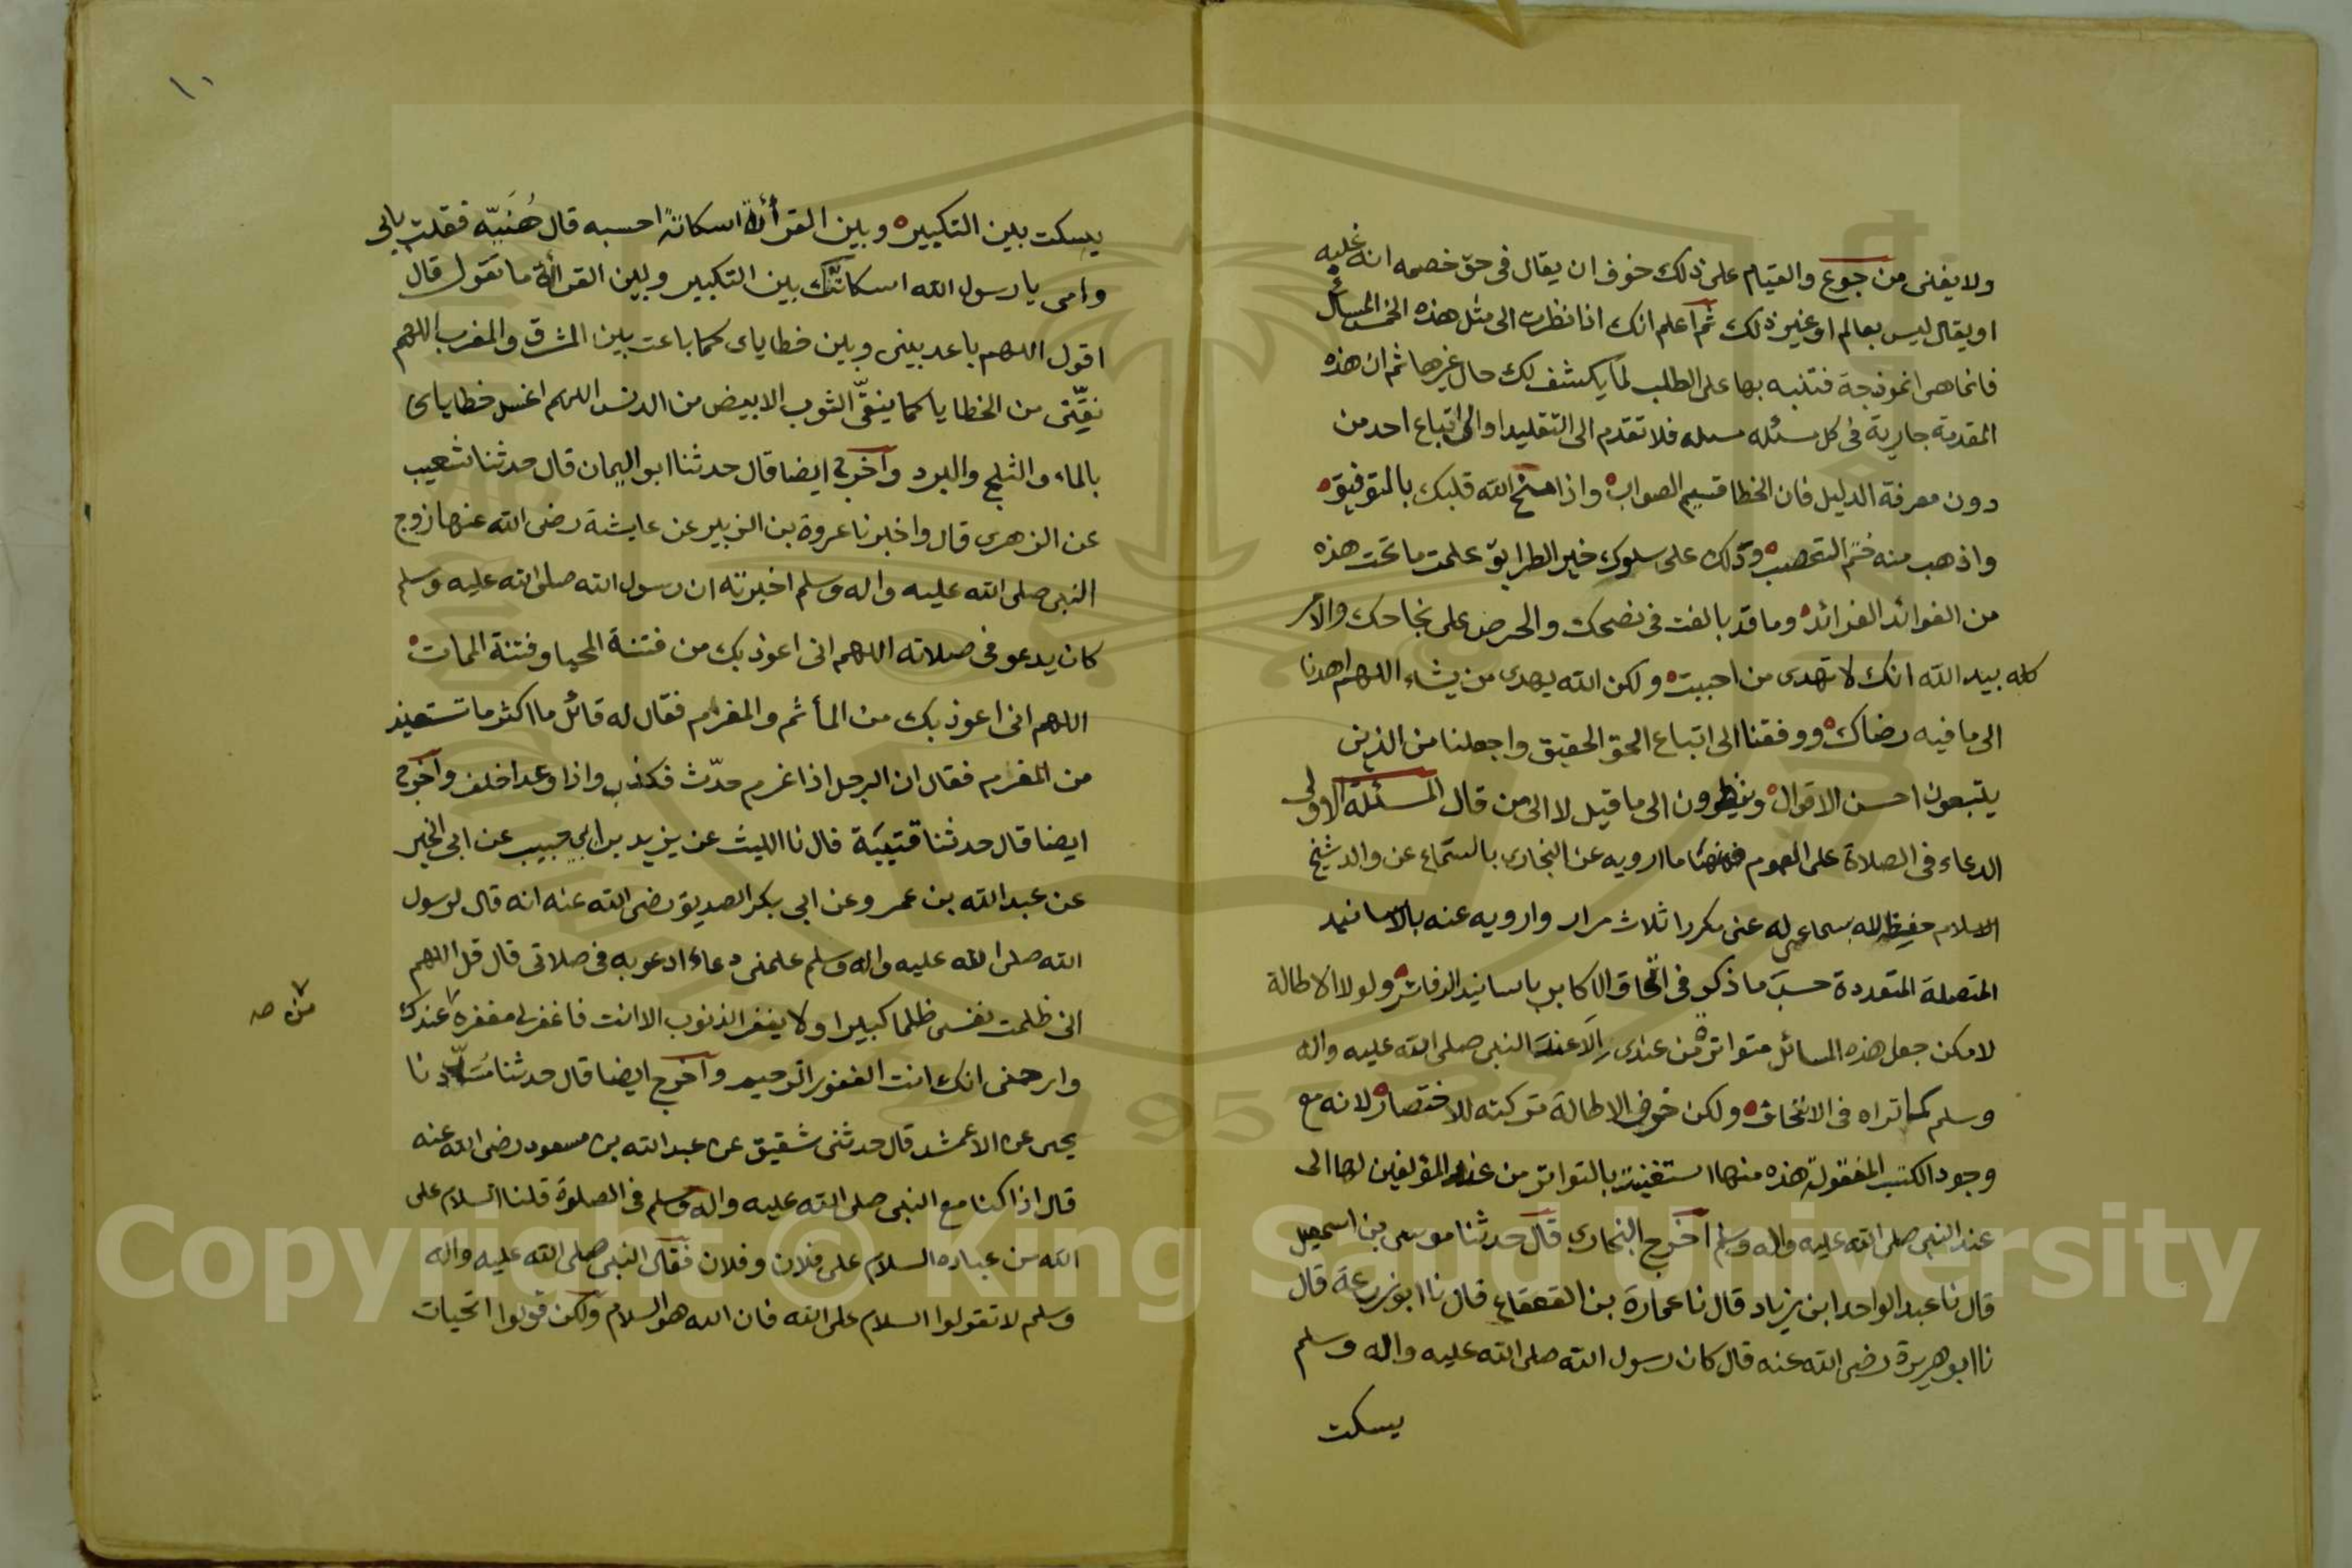 ولا يغنى من جوع والقيام على ذلك خوف ان يقال فى حق خصمه انه غلبه
او يقال ليس بعالم او غير ذلك ثم اعلم انك اذا نظرت الى مثل هذه الخمس المسائل
فانما هى انموذجة فتنبه بها على الطلب لما يكشف لك حال غيرها ثم ان هذه
المقدمة جارية فى كل مسئله مسله فلا تقدم الى التقليد او الى اتباع احد من
دون معرفة الدليل فان الخطا قسيم الصواب واذا منح الله قلبك بالتوفيق
واذهب منه التعصب ودلك على سلوك خير الطرايق علمت ما تحت هذه
من الفوائد الفرائد وما قد بالغت فى نصحك والحرص على نجاحك والامر
كله بيد الله انك لا تهدى من احببت ولكن الله يهدى من يشاء اللهم اهدنا
الى ما فيه رضاك ووفقنا الى اتباع الحق الحقيق واجعلنا من الذين
يتبعون احسن الاقوال وينظرون الى ما قيل لا الى من قال المسئلة الاولى
الدعاء فى الصلاة على العموم ما ارويه عن البخارى بالسماع عن والد شيخ
الاسلام حفيظ الله بسماعى له عنى مكررا ثلاث مرار وارويه عنه بالاسانيد
المتصلة المتعددة حسب ما ذكر فى اتحاف الاكابر باسانيد الدفاتر ولولا الاطالة
لامكن جعل هذه المسائل متواترة من عندى الا عند النبى صلى الله عليه واله
وسلم كما تراه فى الاتحاف ولكن خوف الاطالة تركته للاختصار لانه مع
وجود الكتب المنقولة هذه منها استغنيت بالتواتر من عند المؤلفين لها الى
عند النبى صلى الله عليه واله وسلم اخرج البخارى قال حدثنا موسى بن اسمعيل
قال نا عبد الواحد ابن زياد قال نا عمارة بن القعقاع قال نا ابو زرعة قال
نا ابو هريرة رضى الله عنه قال كان رسول الله صلى الله عليه واله وسلم
يسكت
١٠
يسكت بين التكبير وبين القرأة اسكاتة احسبه قال هُنَيّه فقلت بابى
وامى يا رسول الله اسكاتك بين التكبير وبين القرأة ما تقول قال
اقول اللهم باعد بينى وبين خطاياى كما باعدت بين المشرق والمغرب اللهم
نقّنى من الخطايا كما ينقّى الثوب الابيض من الدنس اللهم اغسل خطاياى
بالماء والثلج والبرد واخرج ايضا قال حدثنا ابو اليمان قال حدثنا شعيب
عن الزهرى قال واخبرنا عروة بن الزبير عن عايشة رضى الله عنها زوج
النبى صلى الله عليه واله وسلم اخبرته ان رسول الله صلى الله عليه وسلم
كان يدعو فى صلاته اللهم انى اعوذ بك من فتنة المحيا وفتنة الممات
اللهم انى اعوذ بك من المأثم والمغرم فقال له قائل ما اكثر ما تستعيذ
من المغرم فقال ان الرجل اذا غرم حدّث فكذب واذا وعد اخلف واخرج
ايضا قال حدثنا قتيبَة قال نا الليث عن يزيد بن ابي حبيب عن ابى الخير
عن عبد الله بن عمرو عن ابي بكر الصديق رضى الله عنه انه قال لرسول
الله صلى الله عليه واله وسلم علمنى دعاء ادعو به فى صلاتى قال قل اللهم
انى ظلمت نفسى ظلما كبيرا ولا يغفر الذنوب الا انت فاغفر لى مغفره عندك
من صه
وارحمنى انك انت الغفور الرحيم واخرج ايضا قال حدثنا مُسَدّد نا
يحيى عن الاعمش قال حدثنى شقيق عن عبد الله بن مسعود رضى الله عنه
قال اذا كنا مع النبى صلى الله عليه واله وسلم فى الصلوة قلنا السلام على
الله من عباده السلام على فلان وفلان فقال النبى صلى الله عليه واله
وسلم لا تقولوا السلام على الله فان الله هو السلام ولكن قولوا التحيات
Copyright © King Saud University
1957